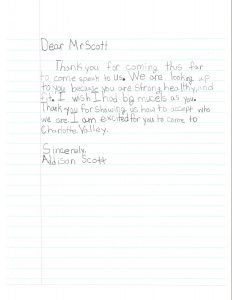 Dear Mr Scott
Thank you for coming this far
to come speak to us. We are looking up
to you because you are strong, healthy, and
fit. I wish I had big mucels as you.
Thank you for showing us how to accept who
we are. I am excited for you to come to
Charlotte Valley.
Sincerely,
Addison Scott